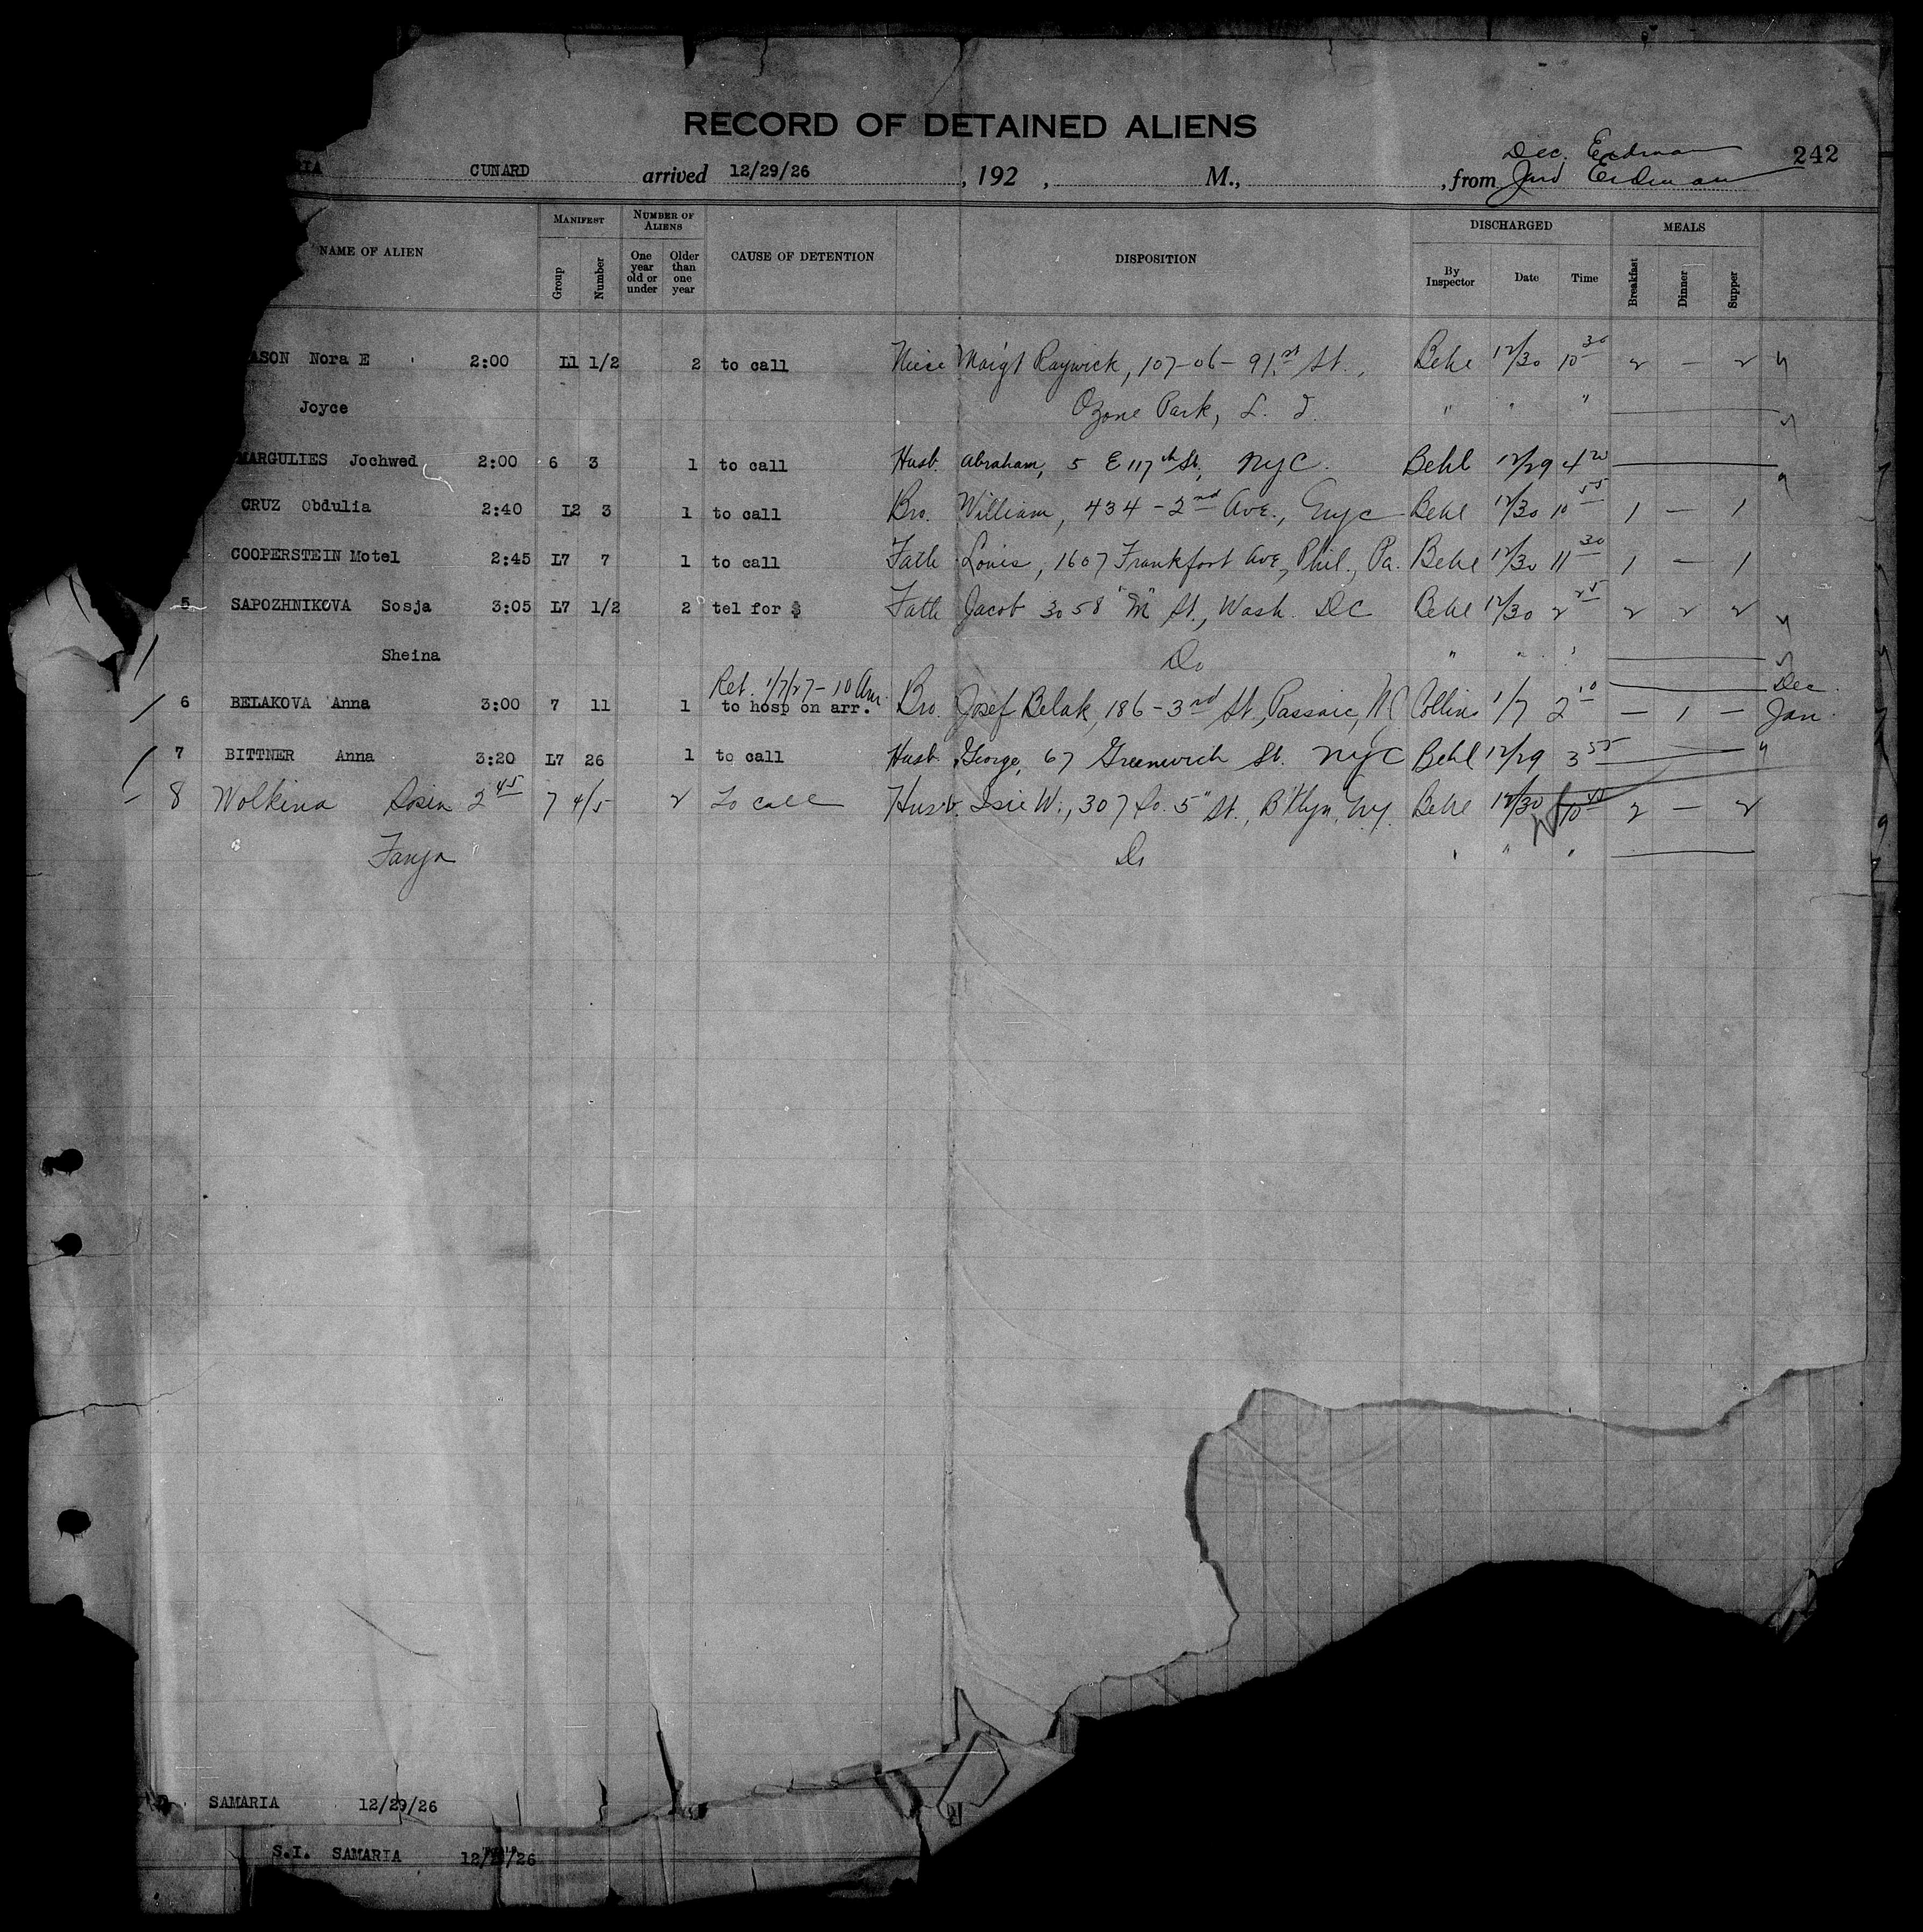 RECORD OF DETAINED ALIENS
Dec. Erdman 242
RIA CUNARD arrived 12/29/26 , 192 , M., , from Jard Erdman
NAME OF ALIEN MANIFEST Group Number NUMBER OF ALIENS One year old or under Older than one year CAUSE OF DETENTION DISPOSITION DISCHARGED By Inspector Date Time MEALS Breakfast Dinner Supper
ASON Nora E 2:00 L1 1/2 2 to call Niece Maigt Raywick, 107-06-91st St., Behl 12/30 10 30 2 — 2
Joyce Ozone Park, L. I. " " "
MARGULIES Jochwed 2:00 6 3 1 to call Husb. Abraham, 5 E 117th St, NYC. Behl 12/29 4 20
CRUZ Obdulia 2:40 L2 3 1 to call Bro. William, 434-2nd Ave., NYC Behl 12/30 10 55 1 — 1
COOPERSTEIN Motel 2:45 L7 7 1 to call Fath Louis, 1607 Frankfort Ave, Phil., Pa. Behl 12/30 11 30 1 — 1
5 SAPOZHNIKOVA Sosja 3:05 L7 1/2 2 tel for $ Fath Jacob 3058 "M" St., Wash. DC Behl 12/30 2 25 2 2 2
Sheina Do " " "
Ret. 1/7/27-10 Am. Dec.
6 BELAKOVA Anna 3:00 7 11 1 to hosp on arr. Bro. Josef Belak, 186-3rd St, Passaic, NJ Collins 1/7 2 10 — 1 — Jan.
7 BITTNER Anna 3:20 L7 26 1 to call Husb. George, 67 Greenwich St. NYC Behl 12/29 3 55
8 Wolkina Rosin 2 45 7 4/5 2 To call Husb. Isie W., 307 So. 5" St., B'klyn, NY. Behl 12/30 10 40 2 — 2
Fanja Do " " "
SAMARIA 12/29/26
S.I. SAMARIA